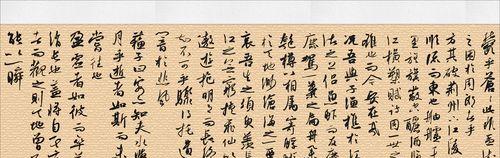 鬱乎蒼蒼此非孟
之困於周郎者乎
方其破荊州下江陵
順流而東也舳艫千
里旌旗蔽空釃酒臨
江橫槊賦詩固一世之
雄也而今安在哉
況吾與子漁樵於江
渚之上侶魚蝦而友麋
鹿駕一葉之扁舟舉
匏樽以相屬寄蜉蝣
於天地渺滄海之一粟
哀吾生之須臾羨長
江之無窮挾飛仙以
遨遊抱明月而長終
知不可乎驟得托遺
響於悲風
蘇子曰客亦知夫水與
月乎逝者如斯而未
嘗往也
盈虛者如彼而卒莫
消長也蓋將自其變
者而觀之則天地曾不
能以一瞬